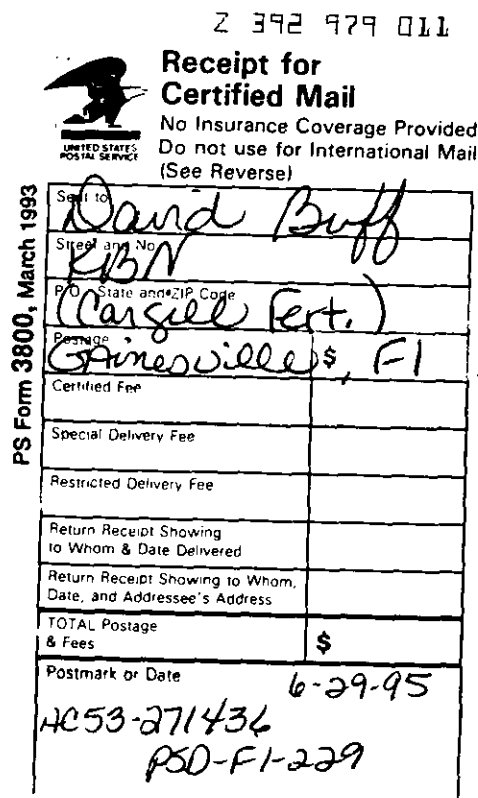 Z 392 979 011
Receipt for
Certified Mail
No Insurance Coverage Provided
Do not use for International Mail
(See Reverse)
UNITED STATES
POSTAL SERVICE
PS Form 3800, March 1993
Sent to
David Buff
Street and No.
KBN
P.O., State and ZIP Code
(Cargill Fert.)
Postage
$
Gainesville, Fl
Certified Fee
Special Delivery Fee
Restricted Delivery Fee
Return Receipt Showing
to Whom & Date Delivered
Return Receipt Showing to Whom,
Date, and Addressee's Address
TOTAL Postage
& Fees
$
Postmark or Date
6-29-95
AC53-271436
PSD-Fl-229